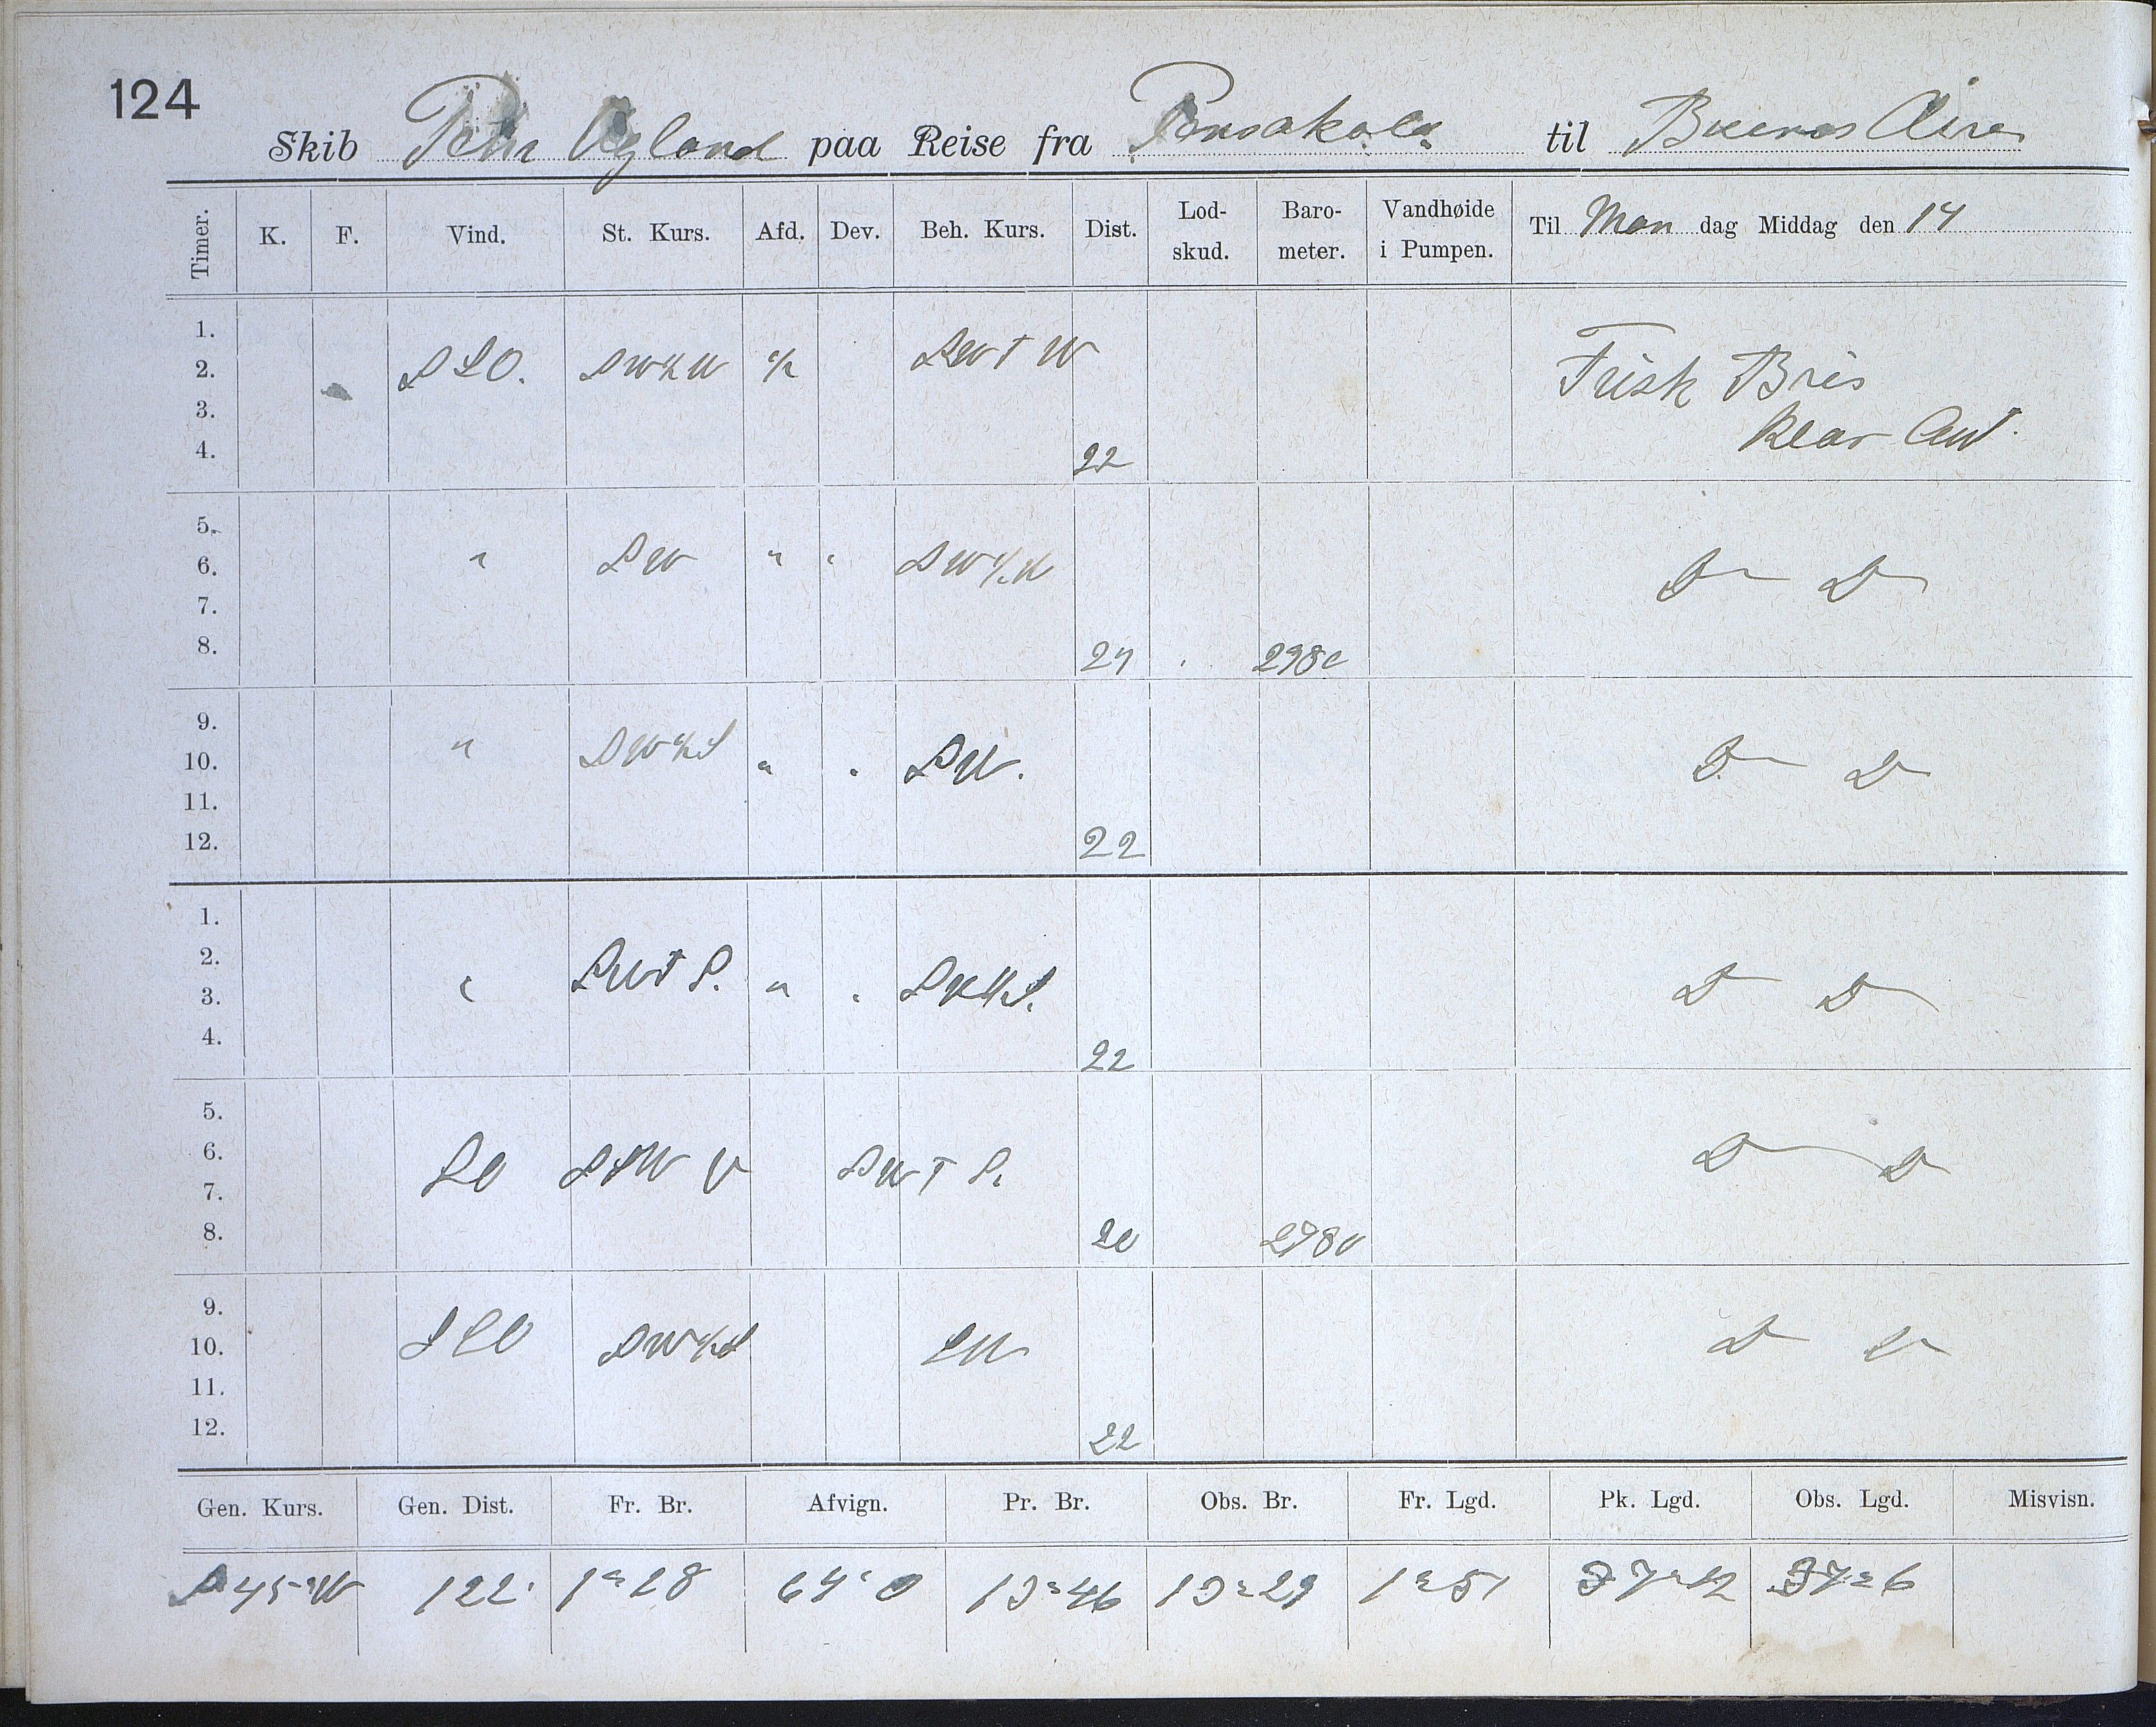 124
Skib Peter Ugland paa Reise fra Pensakola til Buenos Aires
Timer. K. F. Vind. St. Kurs. Afd. Dev. Beh. Kurs. Dist. Lod-skud. Baro-meter. Vandhøide i Pumpen. Til Man dag Middag den 14
1.
2. SSO. SW½W SWTW Frisk Bris
3. klar Luft
4. 22
5.
6. " SW " " SW½W D D
7.
8. 24 2980
9.
10. " SW½S " " SW. D D
11.
12. 22
1.
2. SWTS.
3. " " " SW½S. D D
4. 22
5.
6. SO SSW SWTS. D D
7.
8. 20 2980
9.
10. SSO SW½S SW D D
11.
12. 22
Gen. Kurs. Gen. Dist. Fr. Br. Afvign. Pr. Br. Obs. Br. Fr. Lgd. Pk. Lgd. Obs. Lgd. Misvisn.
S45W 122 1=28 13=46 13=29 1=51 37=12 37=6